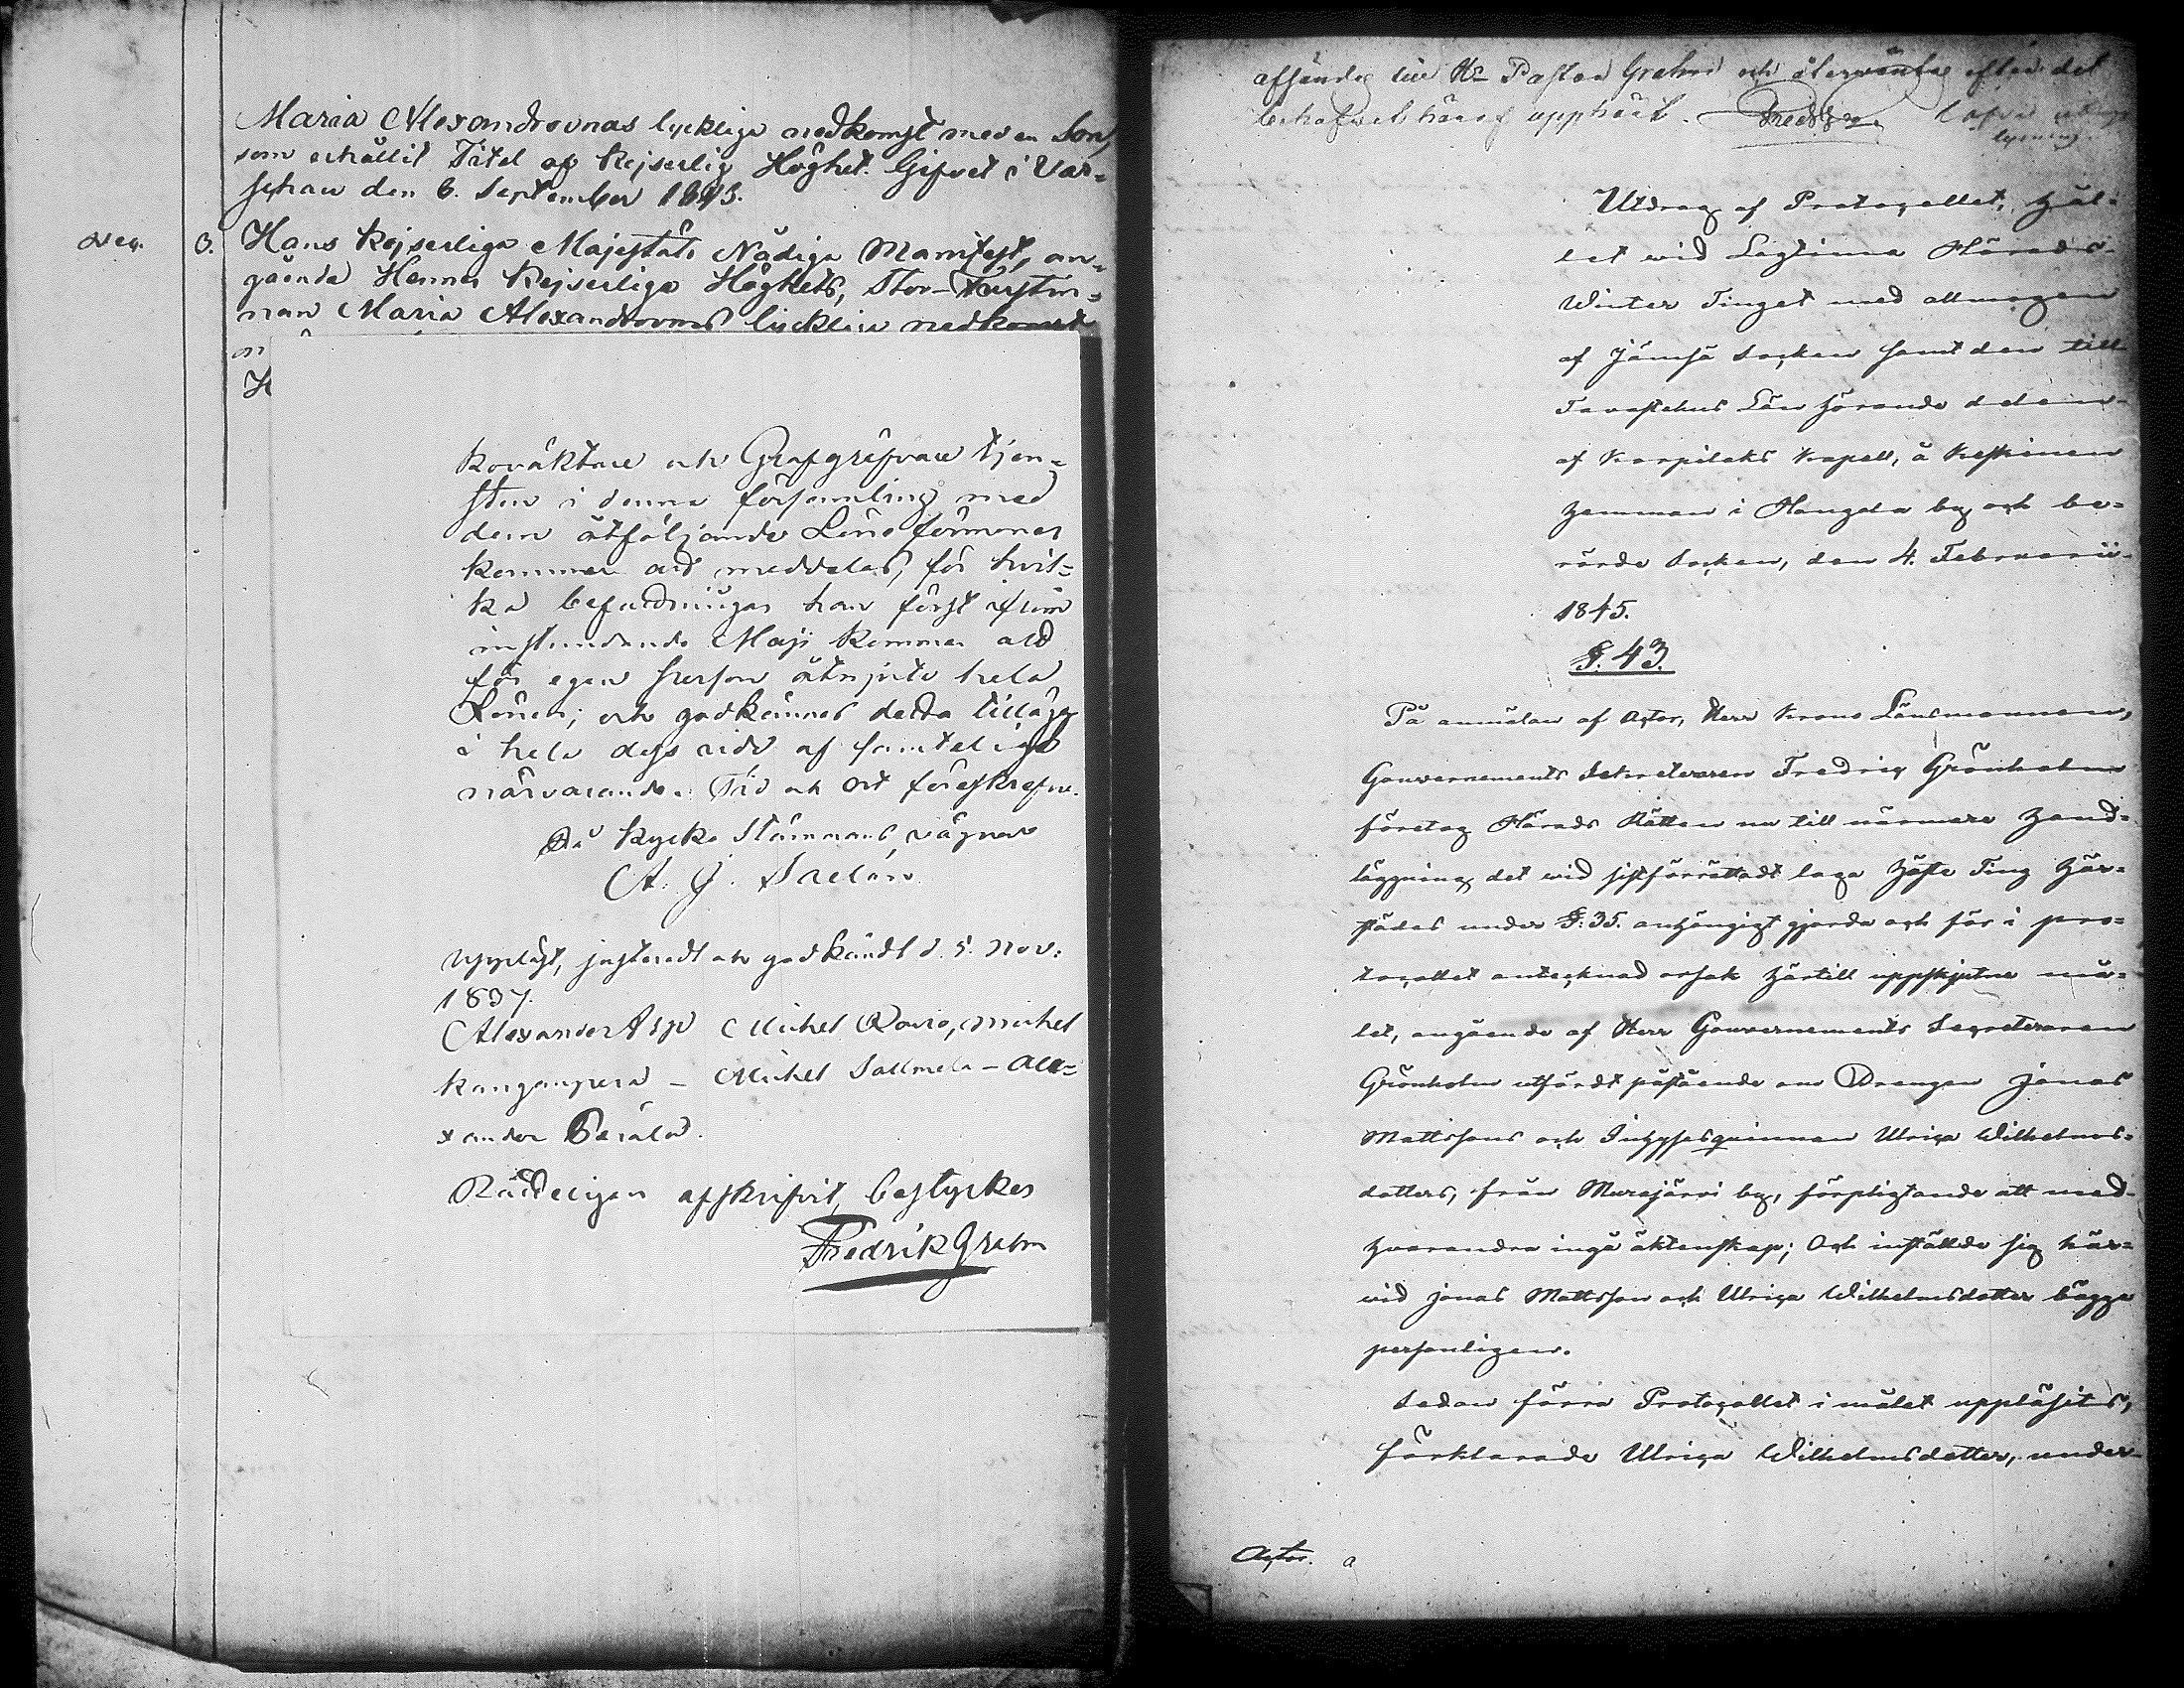 Maria Alexandrovnas lyckliga nedkomst med en Son,
som erhållit Titel af Kejserlig Höghet. Gifvet i War-
schau den 6. September 1843.
3. Hans Kejserliga Majestäts Nådiga Manifest, an-
gående Hennes Kejserliga Höghets, Stor-Furstin-
nan Maria Alexandrovnas lyckliga nedkomst
kovåktare och Grafgräfvare tjen-
sten i denna församling med
dem åtföljande Löneförmoner
kommer att meddelas, för hvil-
ka befattningar han först ifrån
instundande Maji kommer att
för egen person åtnjuta hela
Lönen; och godkännes detta tillägg
i hela dess vidd af samtelige
närvarande. Tid och Ort föreskrefne.
På Kyrko Stämmans vägnar
A. J.
Uppläst, justeradt och godkändt d. 5. Nov:
1837.
Alexander Asp Michel Rouro, Michel
Kangaspera – Michel Sallmela – Ale-
xander Perälä.
Rätteligen afskrifvit, bestyrker
Fredrik Grahn
afsändes till Hr Pastor Grahn och återväntas efter det
behofvet häraf upphört.
Utdrag af Protocollet, hål-
let wid Lagtima Härads-
Winter Tinget med allmogen
af Jämsä Socken samt den till
Tavastehus Län hörande delen
af Korpilaks Kapell, å Keskinen
hemman i Hangola by och be-
rörde Socken, den 4. Februarii
1845.
§. 43.
På anmälan af Actor, Herr Krono Länsmannen,
Gouvernements Sekreteraren Fredric Grönholm
företog Härads Rätten nu till närmare hand-
läggning det wid sistförrättadt laga Höste Ting här-
städes under §. 35. anhängigt gjorda och för i pro-
tocollet antecknad orsak härtill uppskjutne må-
let, angående af Herr Gouvernements Secreteraren
Grönholm utfördt påstående om Drengen Jonas
Mattssons och Inhysesqwinnan Ulrica Wilhelms-
dotters, från Murajärvi by, förpligtande att med
hvarandra ingå äktenskap; Och inställde sig här-
wid Jonas Mattsson och Ulrica Wilhelmsdotter bägge
personligen.
Sedan förra Protocollet i målet uppläsits,
förklarade Ulrica Wilhelmsdotter, under
Actor. a